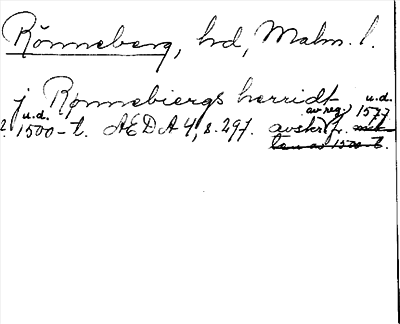 Rönneberg, hd, Malm. l.
j Rønnebiergs herridt
u.d. av reg.) u.d. 1577
2. 1500-t. AEDA 4, s. 297. avskr. fr.
1500-t.